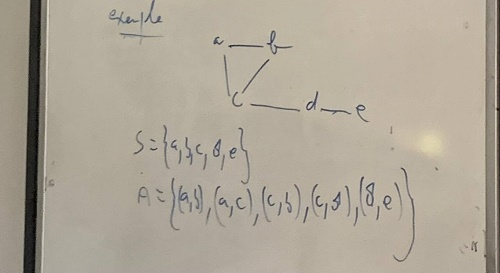 exemple
a b
c d e
S = {a, b, c, d, e}
A = {(a, b), (a, c), (c, b), (c, d), (d, e)}